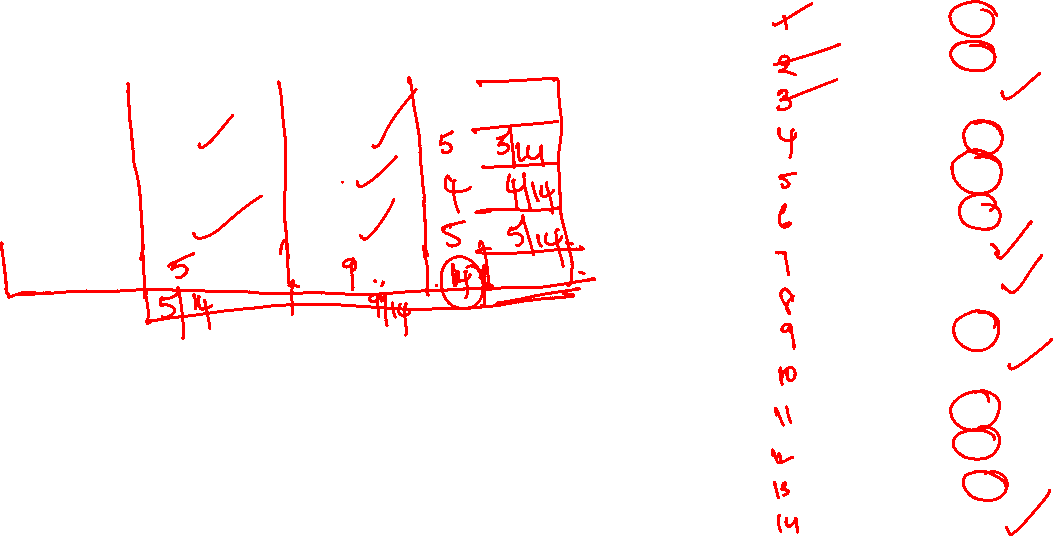 5 3/14
4 4/14
5 5/14
5 9 14
5/14 9/14
1
2
3
4
5
6
7
8
9
10
11
12
13
14